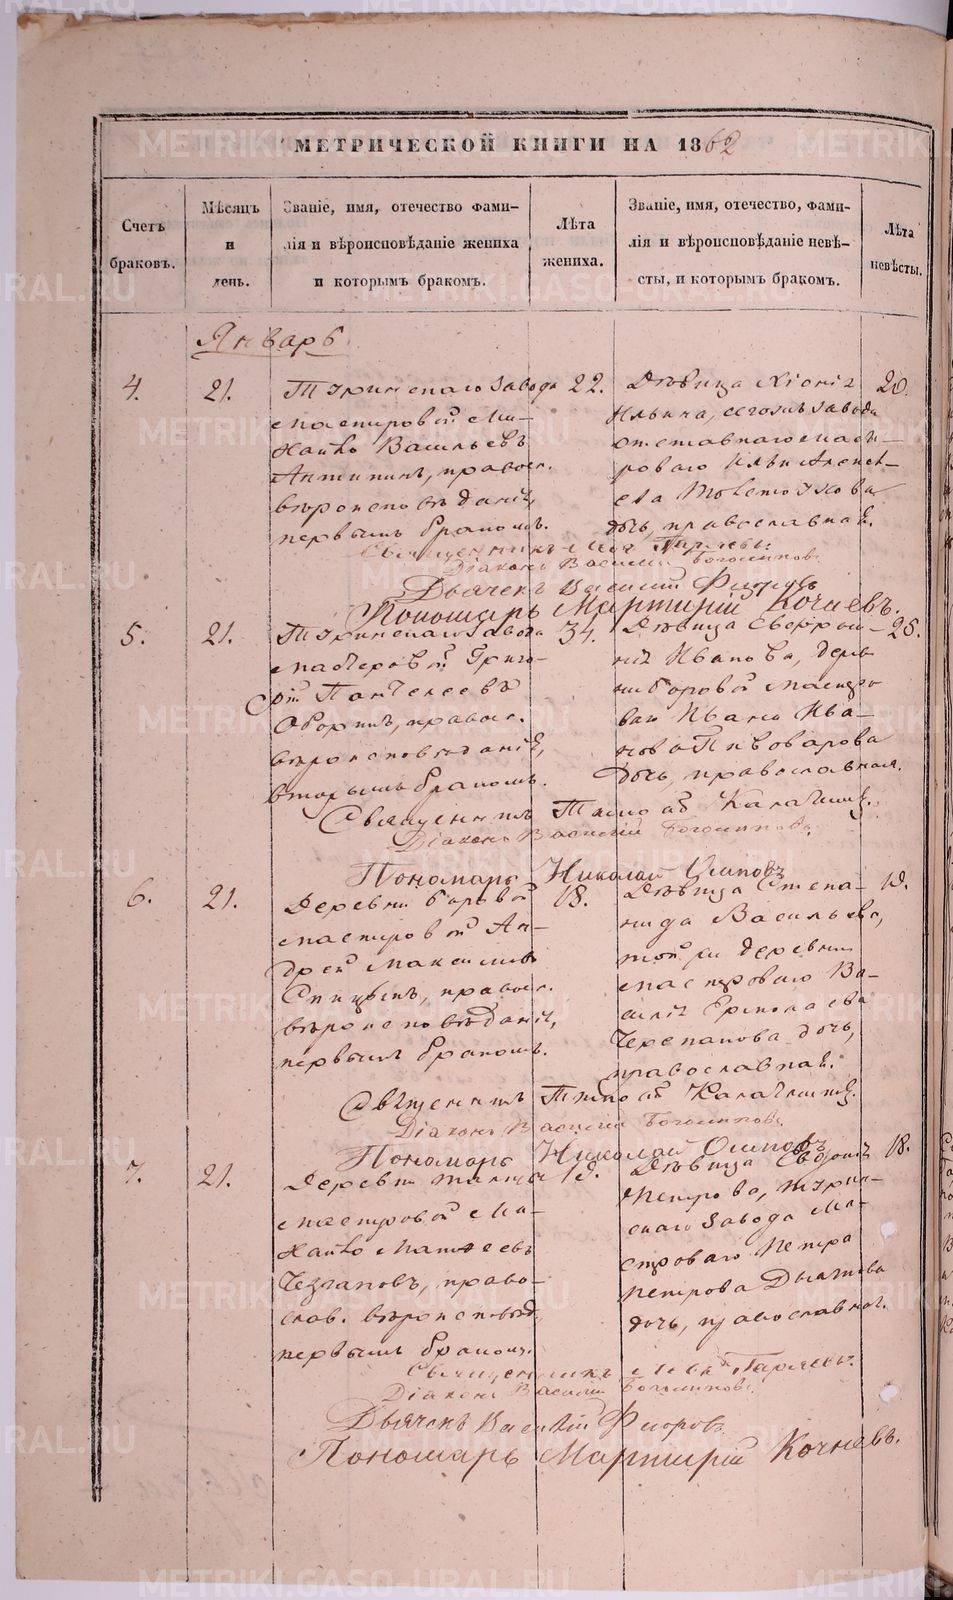 МЕТРИЧЕСКОЙ КНИГИ НА 1862
Счетъ браковъ.
Мѣсяцъ и день.
Званіе, имя, отечество фами-
лія и вѣроисповѣданіе жениха
и которымъ бракомъ.
Лѣта жениха.
Званіе, имя, отечество, фами-
лія и вѣроисповѣданіе невѣ-
сты, и которымъ бракомъ.
Лѣта невѣсты.
Январь
4. 21.
завода
мастировой Ми-
хайло Васильевъ
Антипинъ, правосл.
вѣроисповѣданія,
первымъ бракомъ.
22.
Дѣвица Хіонія
Ильина, сегожъ завода
отставнаго масти-
роваго Ильи Алексѣ-
ева
дочь, православная.
20.
Священникъ
Діаконъ Василій Богомиловъ
Дьячекъ Василій Флоровъ
Пономарь Мартирій Кочневъ.
5. 21.
завода
мастеровой Григо-
рій Пантелеевъ
Оборинъ, правосл.
вѣроисповѣданія,
вторымъ бракомъ.
34.
Дѣвица Евфроси-
нія Иванова, дерев-
ни боровой мастро-
ваго Ивана Ива-
нова Пивоварова
дочь, православная.
25.
Священникъ
Діаконъ Василій Богомиловъ.
Пономарь Николай Осиповъ
6. 21.
Деревни боровой
мастировой Ан-
дрей Максимовъ
Спицынъ, правосл.
вѣроисповѣданія,
первымъ бракомъ.
18.
Дѣвица Степа-
нида Васильева,
той же деревни
мастроваго Ва-
силія Ермолаева
Черепанова дочь,
православная.
19.
Священникъ
Діаконъ Василій Богомиловъ.
Пономарь Николай Осиповъ
7. 21.
Деревни
мастровой Ми-
хайло Матвеевъ
правo-
слав. вѣроисповѣд.
первымъ бракомъ.
19.
Дѣвица Евдокія
Петрова,
скаго завода ма-
строваго Петра
Петрова
дочь, православная.
18.
Священникъ
Діаконъ Василій Богомиловъ
Дьячекъ Василій Флоровъ
Пономарь Мартирій Кочневъ.
METRIKI.GASO-URAL.RU